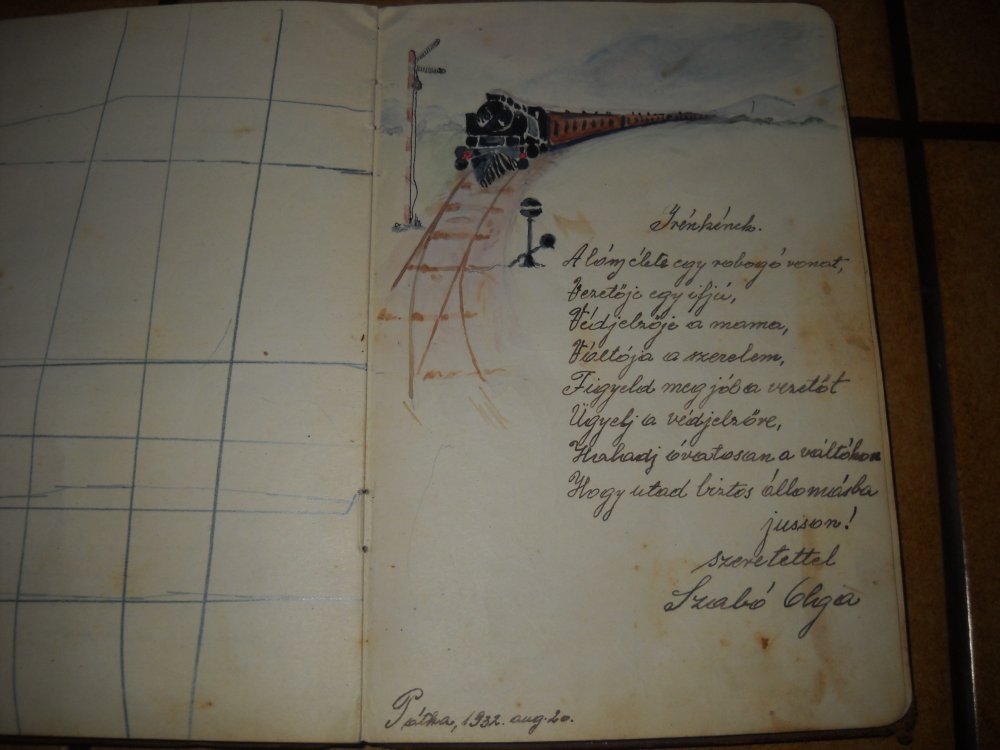 Irénkének.
A lány élete egy robogó vonat,
Vezetője egy ifjú,
Védjelzője a mama,
Váltója a szerelem,
Figyeld meg jól a vezetőt
Ügyelj a védjelzőre,
Haladj óvatosan a váltókon
Hogy utad biztos állomásba
jusson!
szeretettel
Szabó Olga
Pátka, 1932. aug. 20.